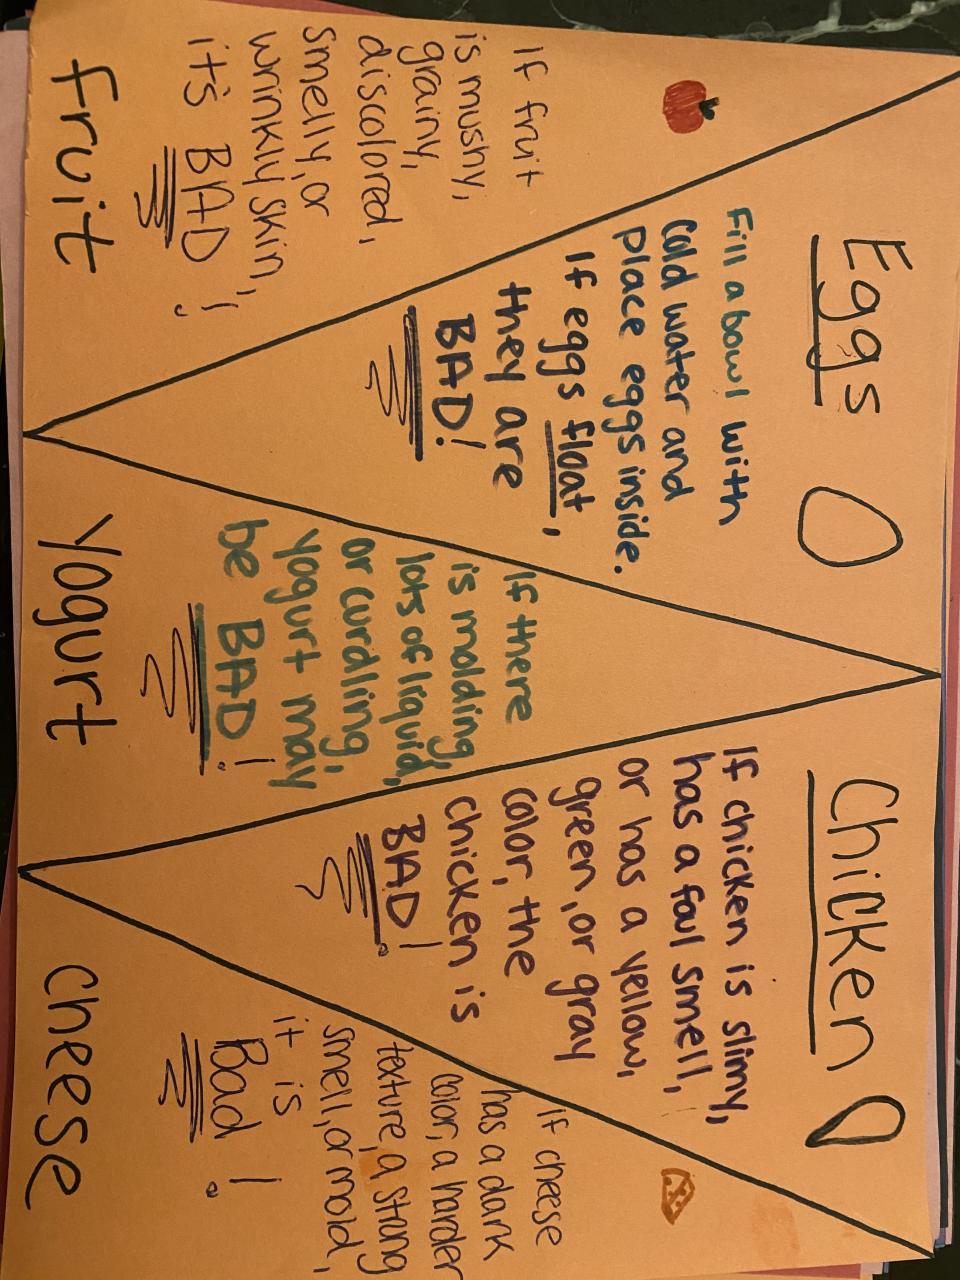 Eggs
Fill a bowl with
cold water and
place eggs inside.
If eggs float,
they are
BAD!
Chicken
If chicken is slimy,
has a foul smell,
or has a yellow,
green, or gray
color, the
chicken is
BAD!
If fruit
is mushy,
grainy,
discolored,
smelly, or
wrinkly skin,
it's BAD!
Fruit
If there
is molding,
lots of liquid,
or curdling,
yogurt may
be BAD!
Yogurt
If cheese
has a dark
color, a harder
texture, a strong
smell, or mold,
it is
Bad!
Cheese